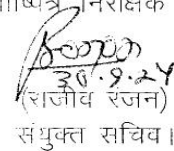 निरीक्षक
30.9.24
(राजीव रंजन)
संयुक्त सचिव।